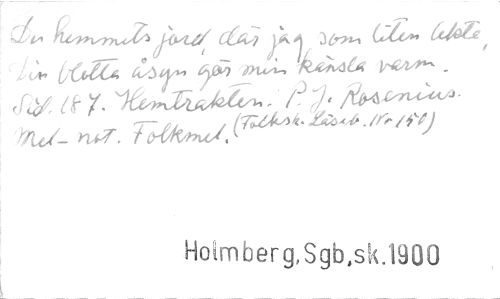 Du hemmets jord, där jag som liten lekte,
din blotta åsyn gör min känsla varm.
Sid. 187. Hemtrakten. P. J. Rosenius.
Mel-not. Folkmel. (Folksk. Läseb. Nr 150)
Holmberg, Sgb, sk. 1900